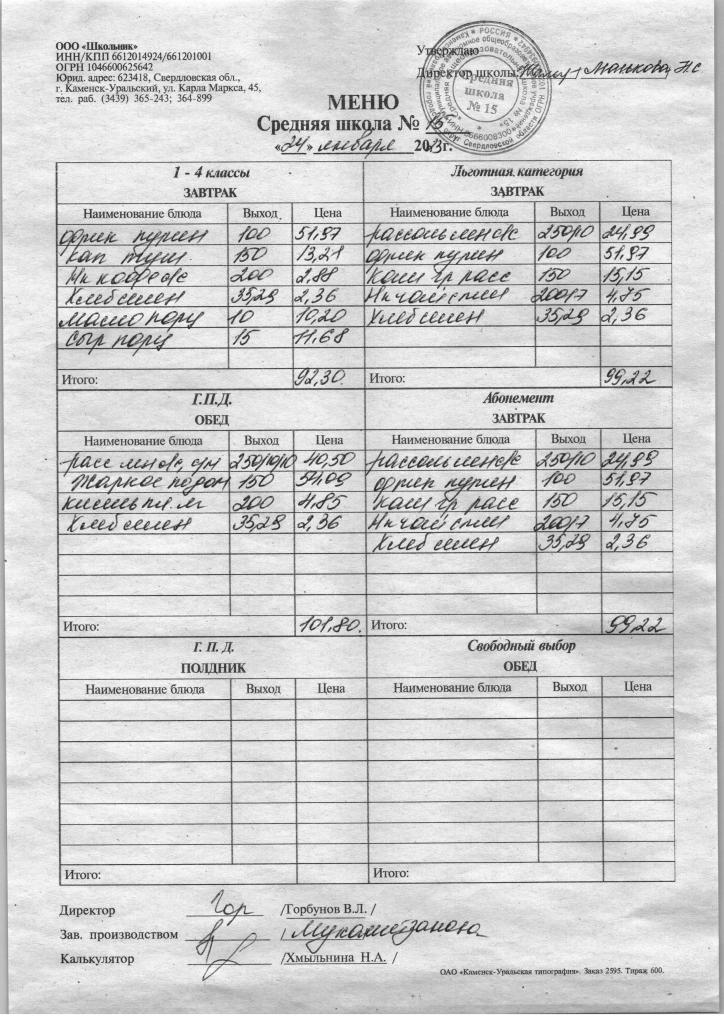 ООО «Школьник»
ИНН/КПП 6612014924/661201001
ОГРН 1046600625642
Юрид. адрес: 623418, Свердловская обл.,
г. Каменск-Уральский, ул. Карла Маркса, 45,
тел. раб. (3439) 365-243; 364-899
Утверждаю
Директор школы:
Средняя школа № 15
МЕНЮ
Средняя школа № 15
«24» января 2023г.
1 - 4 классы
ЗАВТРАК
Наименование блюда Выход Цена
фрик пурин 100 51,97
кап туш. 150 13,21
Нк кофе 200 2,88
Хлеб 35,29 2,36
Масло порц 10 10,20
Сыр порц 15 11,68
Итого: 92,30.
Льготная категория
ЗАВТРАК
Наименование блюда Выход Цена
рассольник 250/10 24,99
фрик пурин 100 51,97
Каш гр расс 150 15,15
Нк чай 200/7 4,75
Хлеб 35,29 2,36
Итого: 99,22
Г.П.Д.
ОБЕД
Наименование блюда Выход Цена
расс 250/10/10 40,50
Жаркое по дом 150 54,09
кисель пл. 200 4,85
Хлеб 35,29 2,36
Итого: 101,80.
Абонемент
ЗАВТРАК
Наименование блюда Выход Цена
рассольник 250/10 24,99
фрик пурин 100 51,97
Каш гр расс 150 15,15
Нк чай 200/7 4,75
Хлеб 35,29 2,36
Итого: 99,22
Г. П. Д.
ПОЛДНИК
Наименование блюда Выход Цена
Итого:
Свободный выбор
ОБЕД
Наименование блюда Выход Цена
Итого:
Директор /Горбунов В.Л. /
Зав. производством /
Калькулятор /Хмыльнина Н.А. /
ОАО «Каменск-Уральская типография». Заказ 2595. Тираж 600.